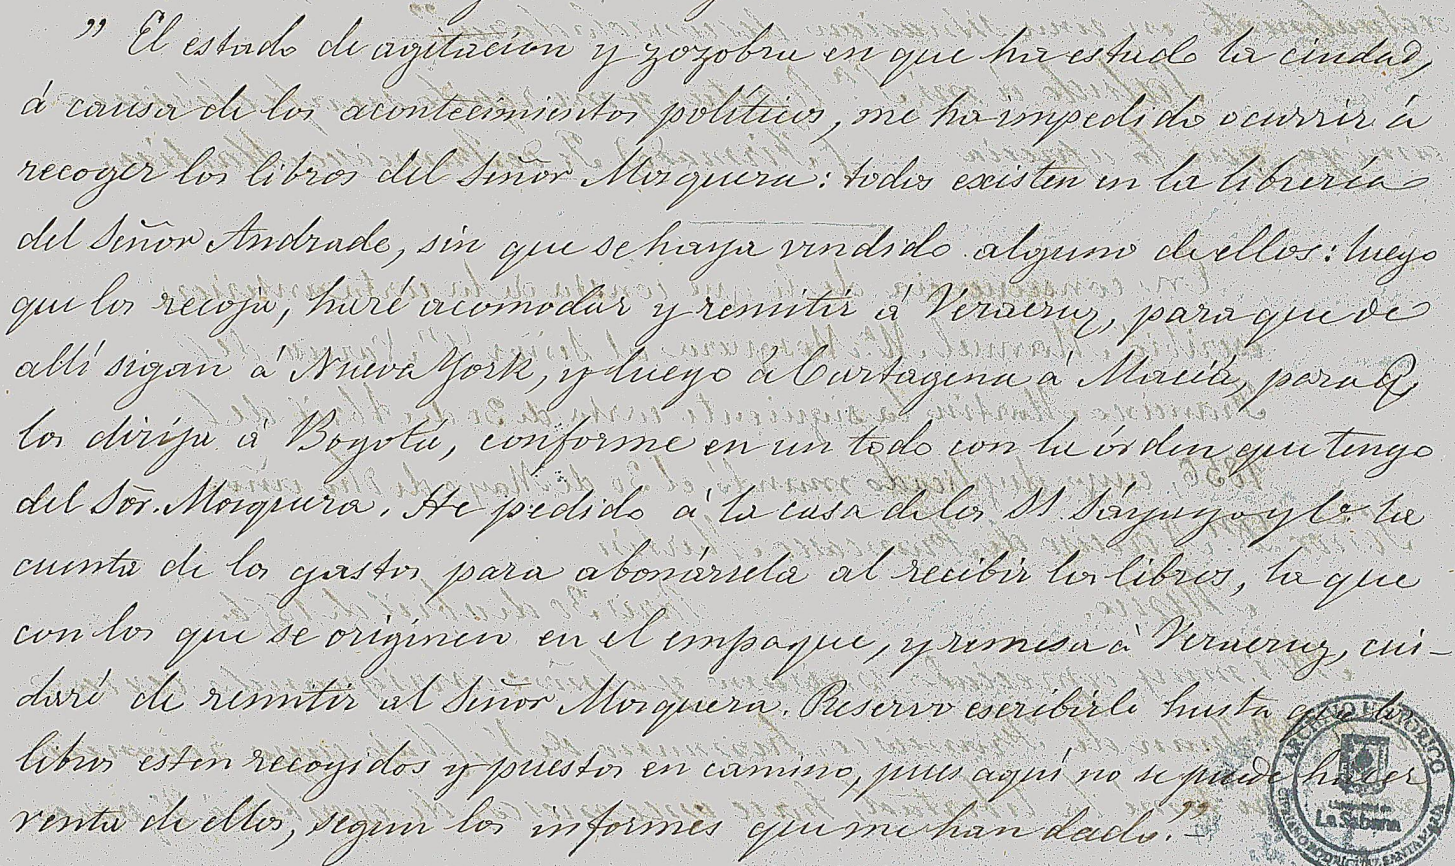 " El estado de agitacion y zozobra en que ha estado la ciudad,
á causa de los acontecimientos políticos, me ha impedido ocurrir á
recoger los libros del Señor Mosquera: todos existen en la librería
del Señor Andrade, sin que se haya vendido alguno de ellos: luego
que los recoja, haré acomodar y remitir á Veracruz, para que de
allí sigan á Nueva York, y luego á Cartagena á Maciá, para q
los dirija á Bogotá, conforme en un todo con la órden que tengo
del Sor. Mosquera. He pedido á la casa de los SS y Ca. la
cuenta de los gastos para abonársela al recibir los libros, la que
con los que se originen en el empaque, y remesa á Veracruz, cui-
daré de remitir al Señor Mosquera. Reservo escribirle hasta que los
libros esten recogidos y puestos en camino, pues aquí no se puede hacer
venta de ellos, segun los informes que me han dado."
ARCHIVO HISTORICO
La Sabana